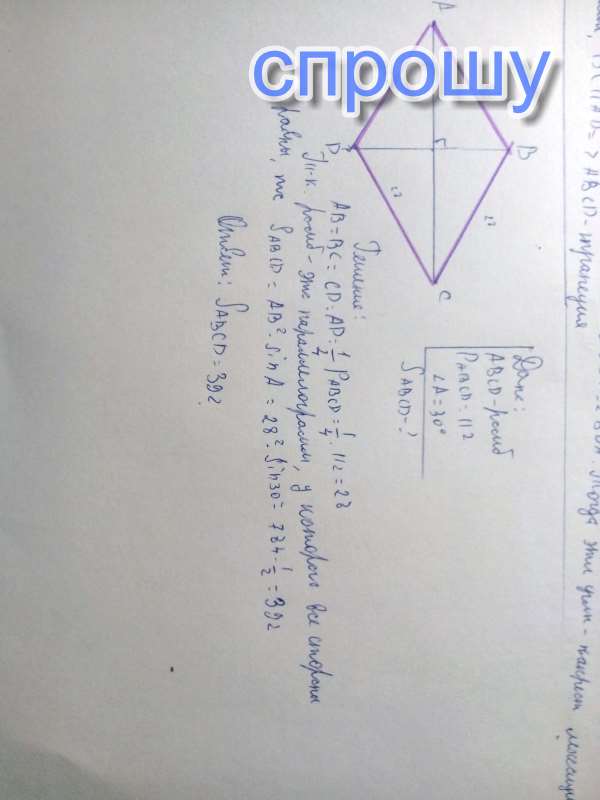 спрошу
BC||AD=> ABCD - трапеция
Тогда эти углы - накрест лежащие
A
B
C
D
27
27
Дано:
ABCD - ромб
PABCD = 112
∠A = 30°
SABCD - ?
Решение:
AB = BC = CD = AD = 1/4 PABCD = 1/4 · 112 = 28
Т.к. ромб - это параллелограмм, у которого все стороны
равны, то SABCD = AB² · sin A = 28² · sin 30 = 784 · 1/2 = 392
Ответ: SABCD = 392.